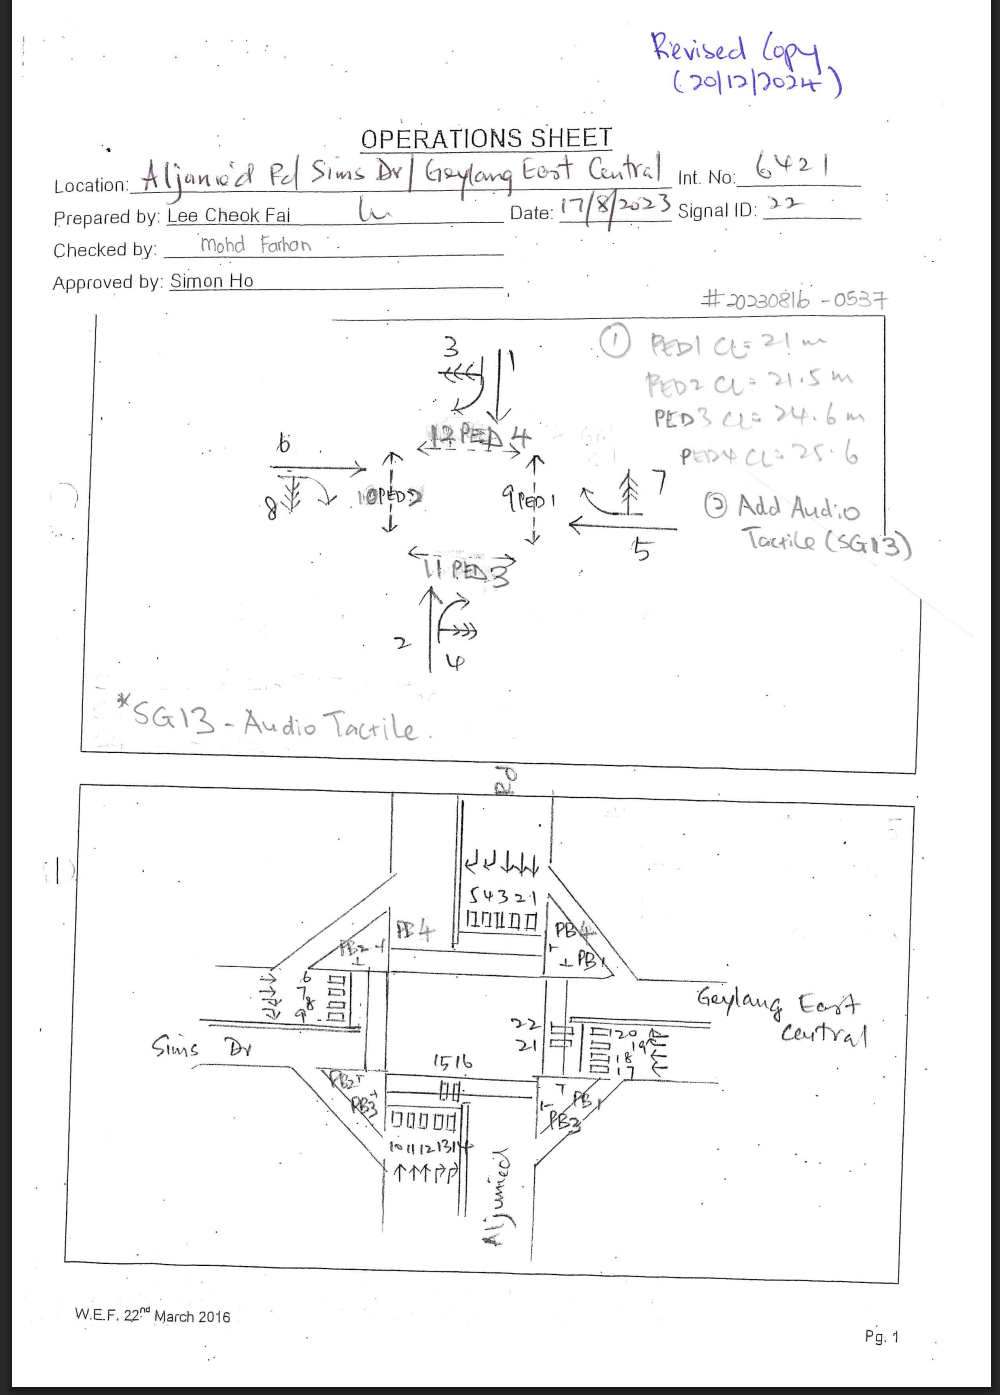 Revised Copy
(20/12/2024)
OPERATIONS SHEET
Location: Aljunied Rd/ Sims Dr/ Geylang East Central Int. No: 6421
Prepared by: Lee Cheok Fai Date: 17/8/2023 Signal ID: 22
Checked by: Mohd Farhan
Approved by: Simon Ho
#20230816-0537
① PED1 CL= 21 m
PED2 CL= 21.5 m
PED3 CL= 24.6 m
PED4 CL= 25.6
② Add Audio
Tactile (SG13)
3 1
12 PED 4
6
8 10 PED2 9 PED1 7
5
11 PED 3
2
4
*SG13 - Audio Tactile.
Rd
(1)
5 4 3 2 1
PB4 PB4
PB2 PB1
6
7
8
9
Geylang East
Central
Sims Dr
22
21
20
19
18
17
15 16
PB2 PB1
PB3 PB3
10 11 12 13 14
Aljunied
W.E.F. 22nd March 2016
Pg. 1